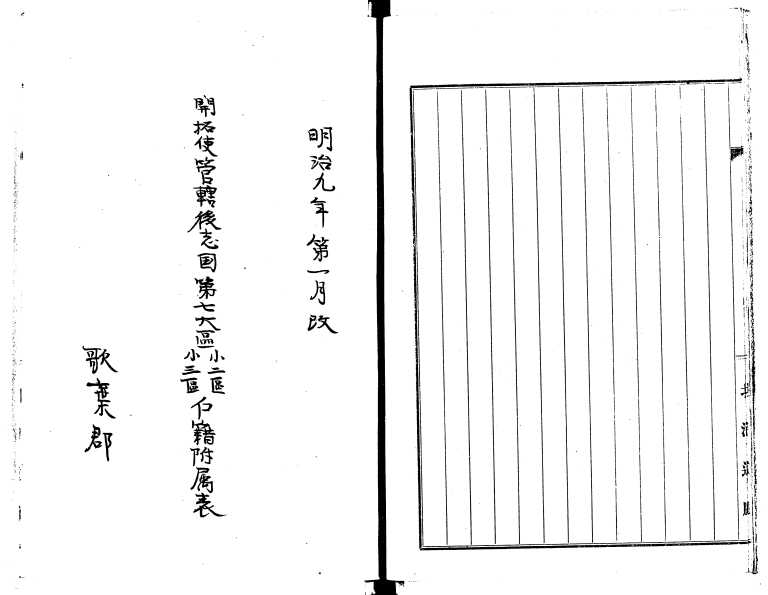 明治九年第一月改
開拓使管轄後志国第七大區小二區小三區戸籍附属表
歌棄郡